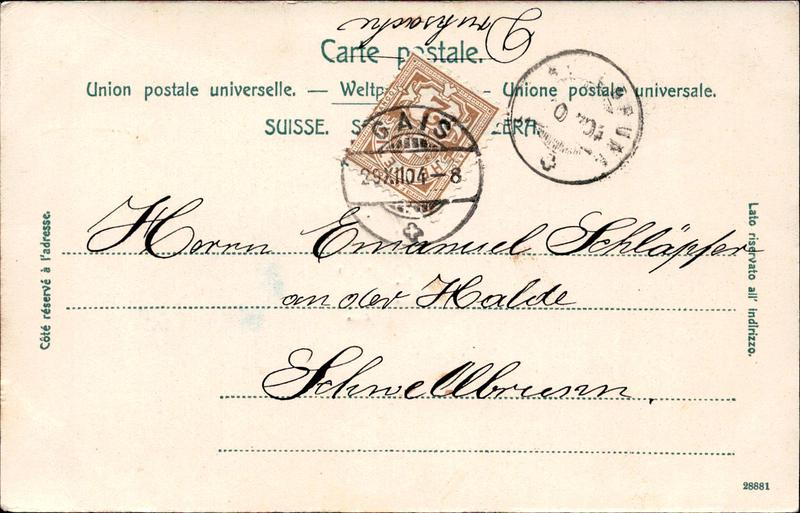 Drucksache
Carte postale.
Union postale universelle. — — Unione postale universale.
SUISSE.
GAIS
29.XII.04-8
Herrn Emanuel Schläpfer
an der Halde
Schwellbrunn.
Côté réservé à l'adresse.
Lato riservato all' indirizzo.
28881